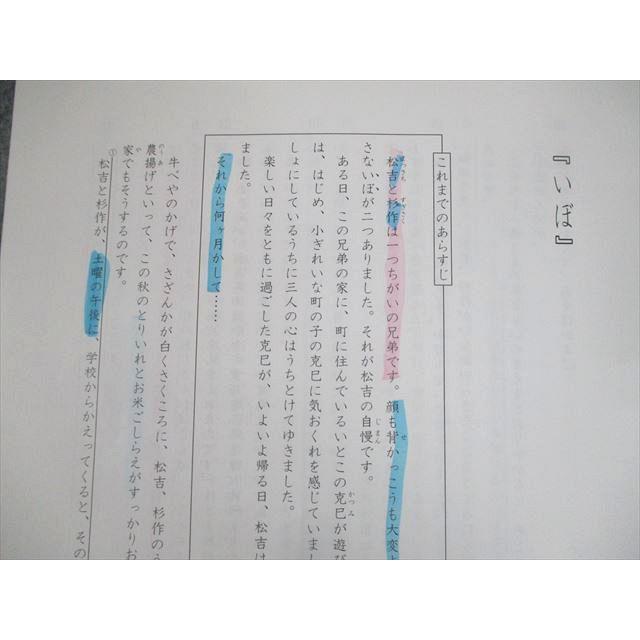 『いぼ』
これまでのあらすじ
松吉と杉作は一つちがいの兄弟です。顔も背かっこうも大変よ
さないぼが二つありました。それが松吉の自慢です。
ある日、この兄弟の家に、町に住んでいるいとこの克巳が遊び
は、はじめ、小ぎれいな町の子の克巳に気おくれを感じていまし
しょにしているうちに三人の心はうちとけてゆきました。
楽しい日々をともに過ごした克巳が、いよいよ帰る日、松吉は
ました。
それから何ヶ月かして……
牛べやのかげで、さざんかが白くさくころに、松吉、杉作のう
農揚げといって、この秋のとりいれとお米ごしらえがすっかりお
家でもそうするのです。
①松吉と杉作が、土曜の午後に、学校からかえってくると、その